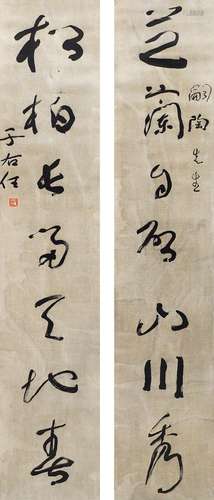 芝蘭自發山川秀
嗣陶先生
松柏長留天地春
于右任